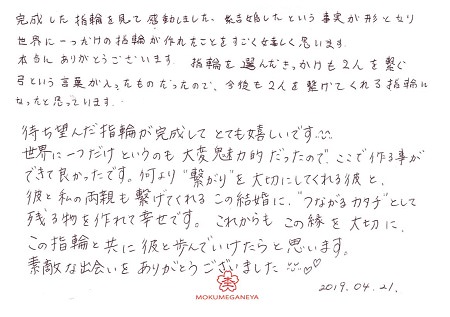 完成した指輪を見て感動しました、結婚したという事実が形となり
世界に一つだけの指輪が作れたことをすごく嬉しく思います。
本当にありがとうございます 指輪を選んだきっかけも2人を繋ぐ
弓という言葉が入ったものだったので、今後も2人を繋げてくれる指輪に
なったと思っています.
待ち望んだ指輪が完成して とても嬉しいです
世界に一つだけというのも 大変魅力的だったので、ここで作る事が
できて良かったです。何より"繋がり"を大切にしてくれる彼と、
彼と私の両親も繋げてくれる この結婚に、"つながるカタチ"として
残る物を作れて幸せです。 これからも この縁を大切に、
この指輪と共に彼と歩んでいけたらと思います。
素敵な出会いを ありがとうございました ♡♡
MOKUMEGANEYA
2019.04.21.